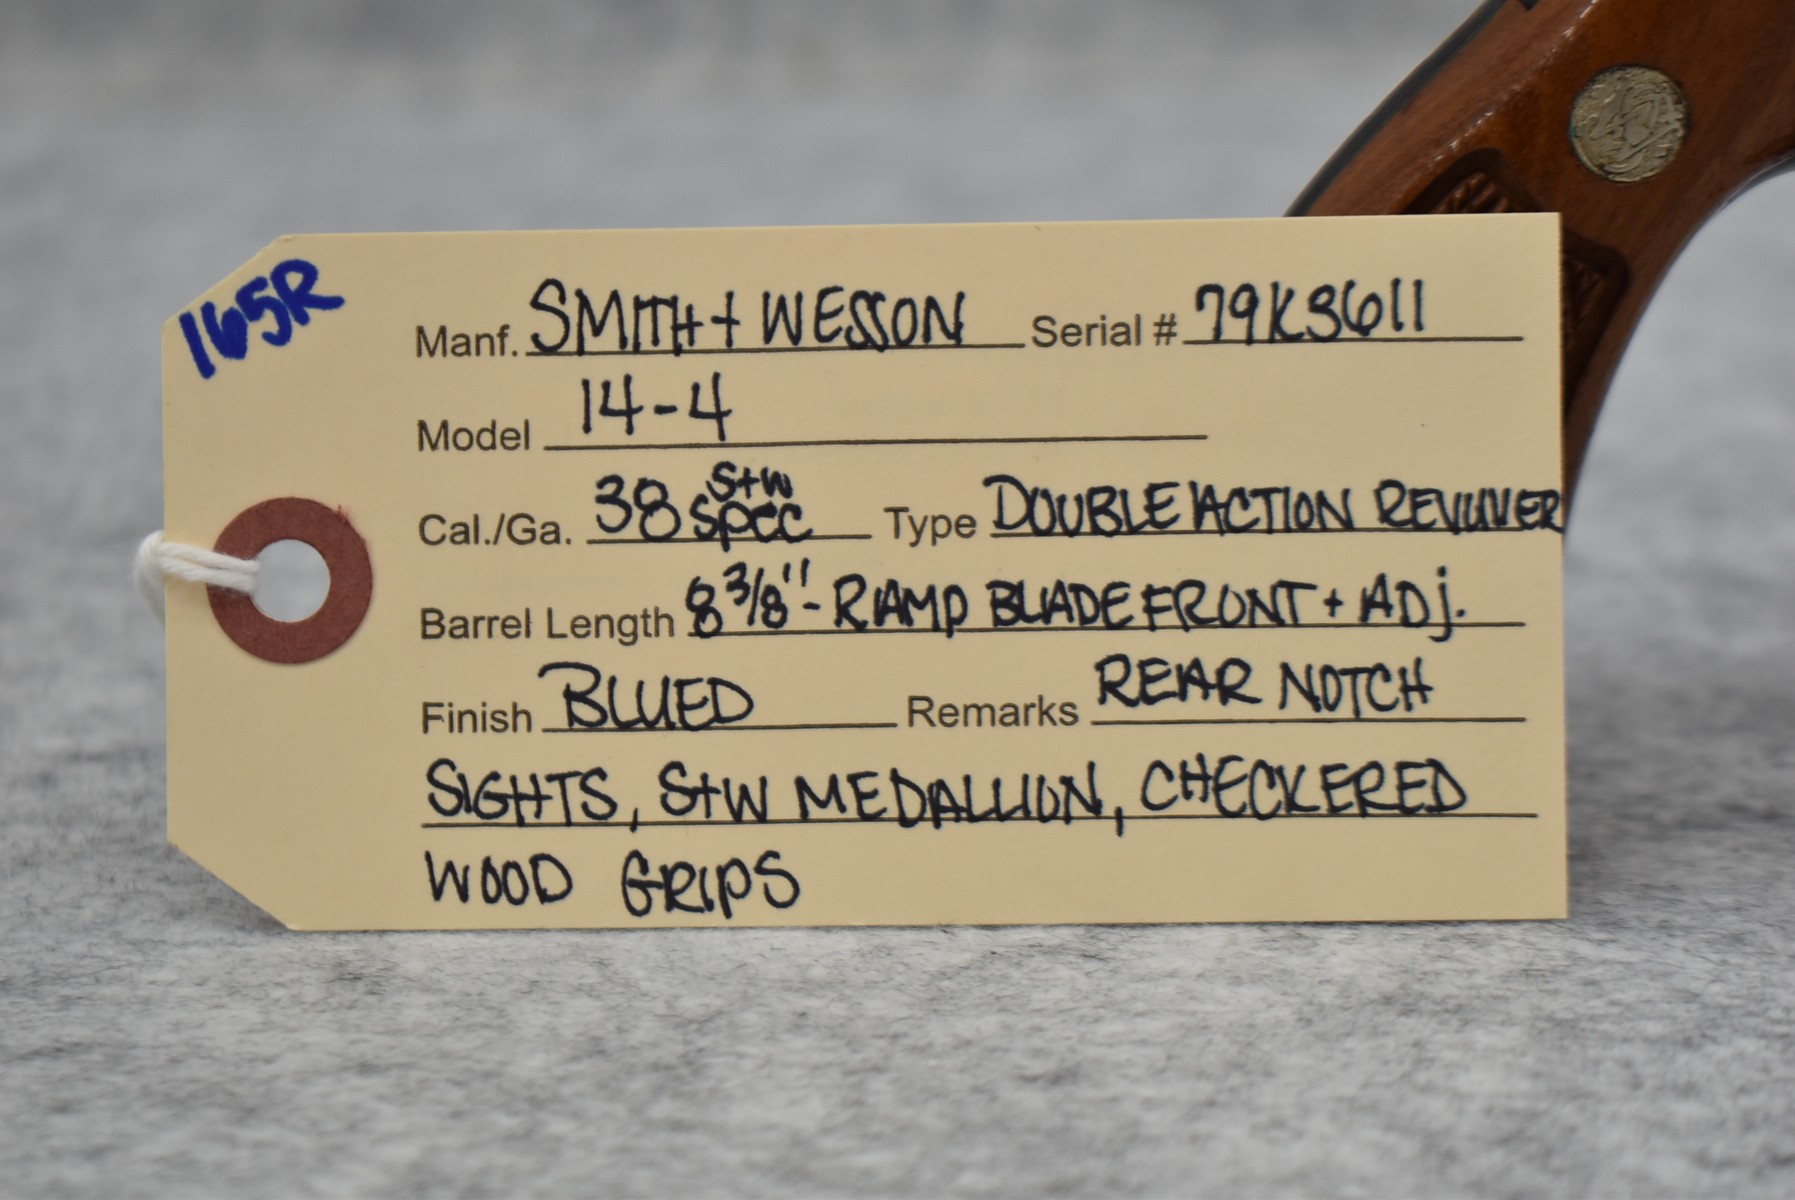 165R
Manf. SMITH + WESSON Serial # 79K3611
Model 14-4
Cal./Ga. 38 S+W SPEC Type DOUBLE ACTION REVOLVER
Barrel Length 8 3/8" - RAMP BLADE FRONT + ADJ.
Finish BLUED Remarks REAR NOTCH
SIGHTS, S+W MEDALLION, CHECKERED
WOOD GRIPS